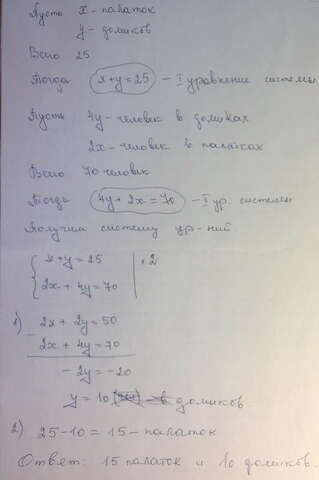 Пусть x - палаток
y - домиков
Всего 25
Тогда x+y=25 - I уравнение системы
Пусть 4y - человек в домиках
2x - человек в палатках
Всего 70 человек
Тогда 4y + 2x = 70 - I ур. системы
Получим систему ур-ний
{ x+y = 25 | · 2
2x + 4y = 70
1) 2x + 2y = 50
- 2x + 4y = 70
- 2y = -20
y = 10 домиков
2) 25-10 = 15 - палаток
Ответ: 15 палаток и 10 домиков.